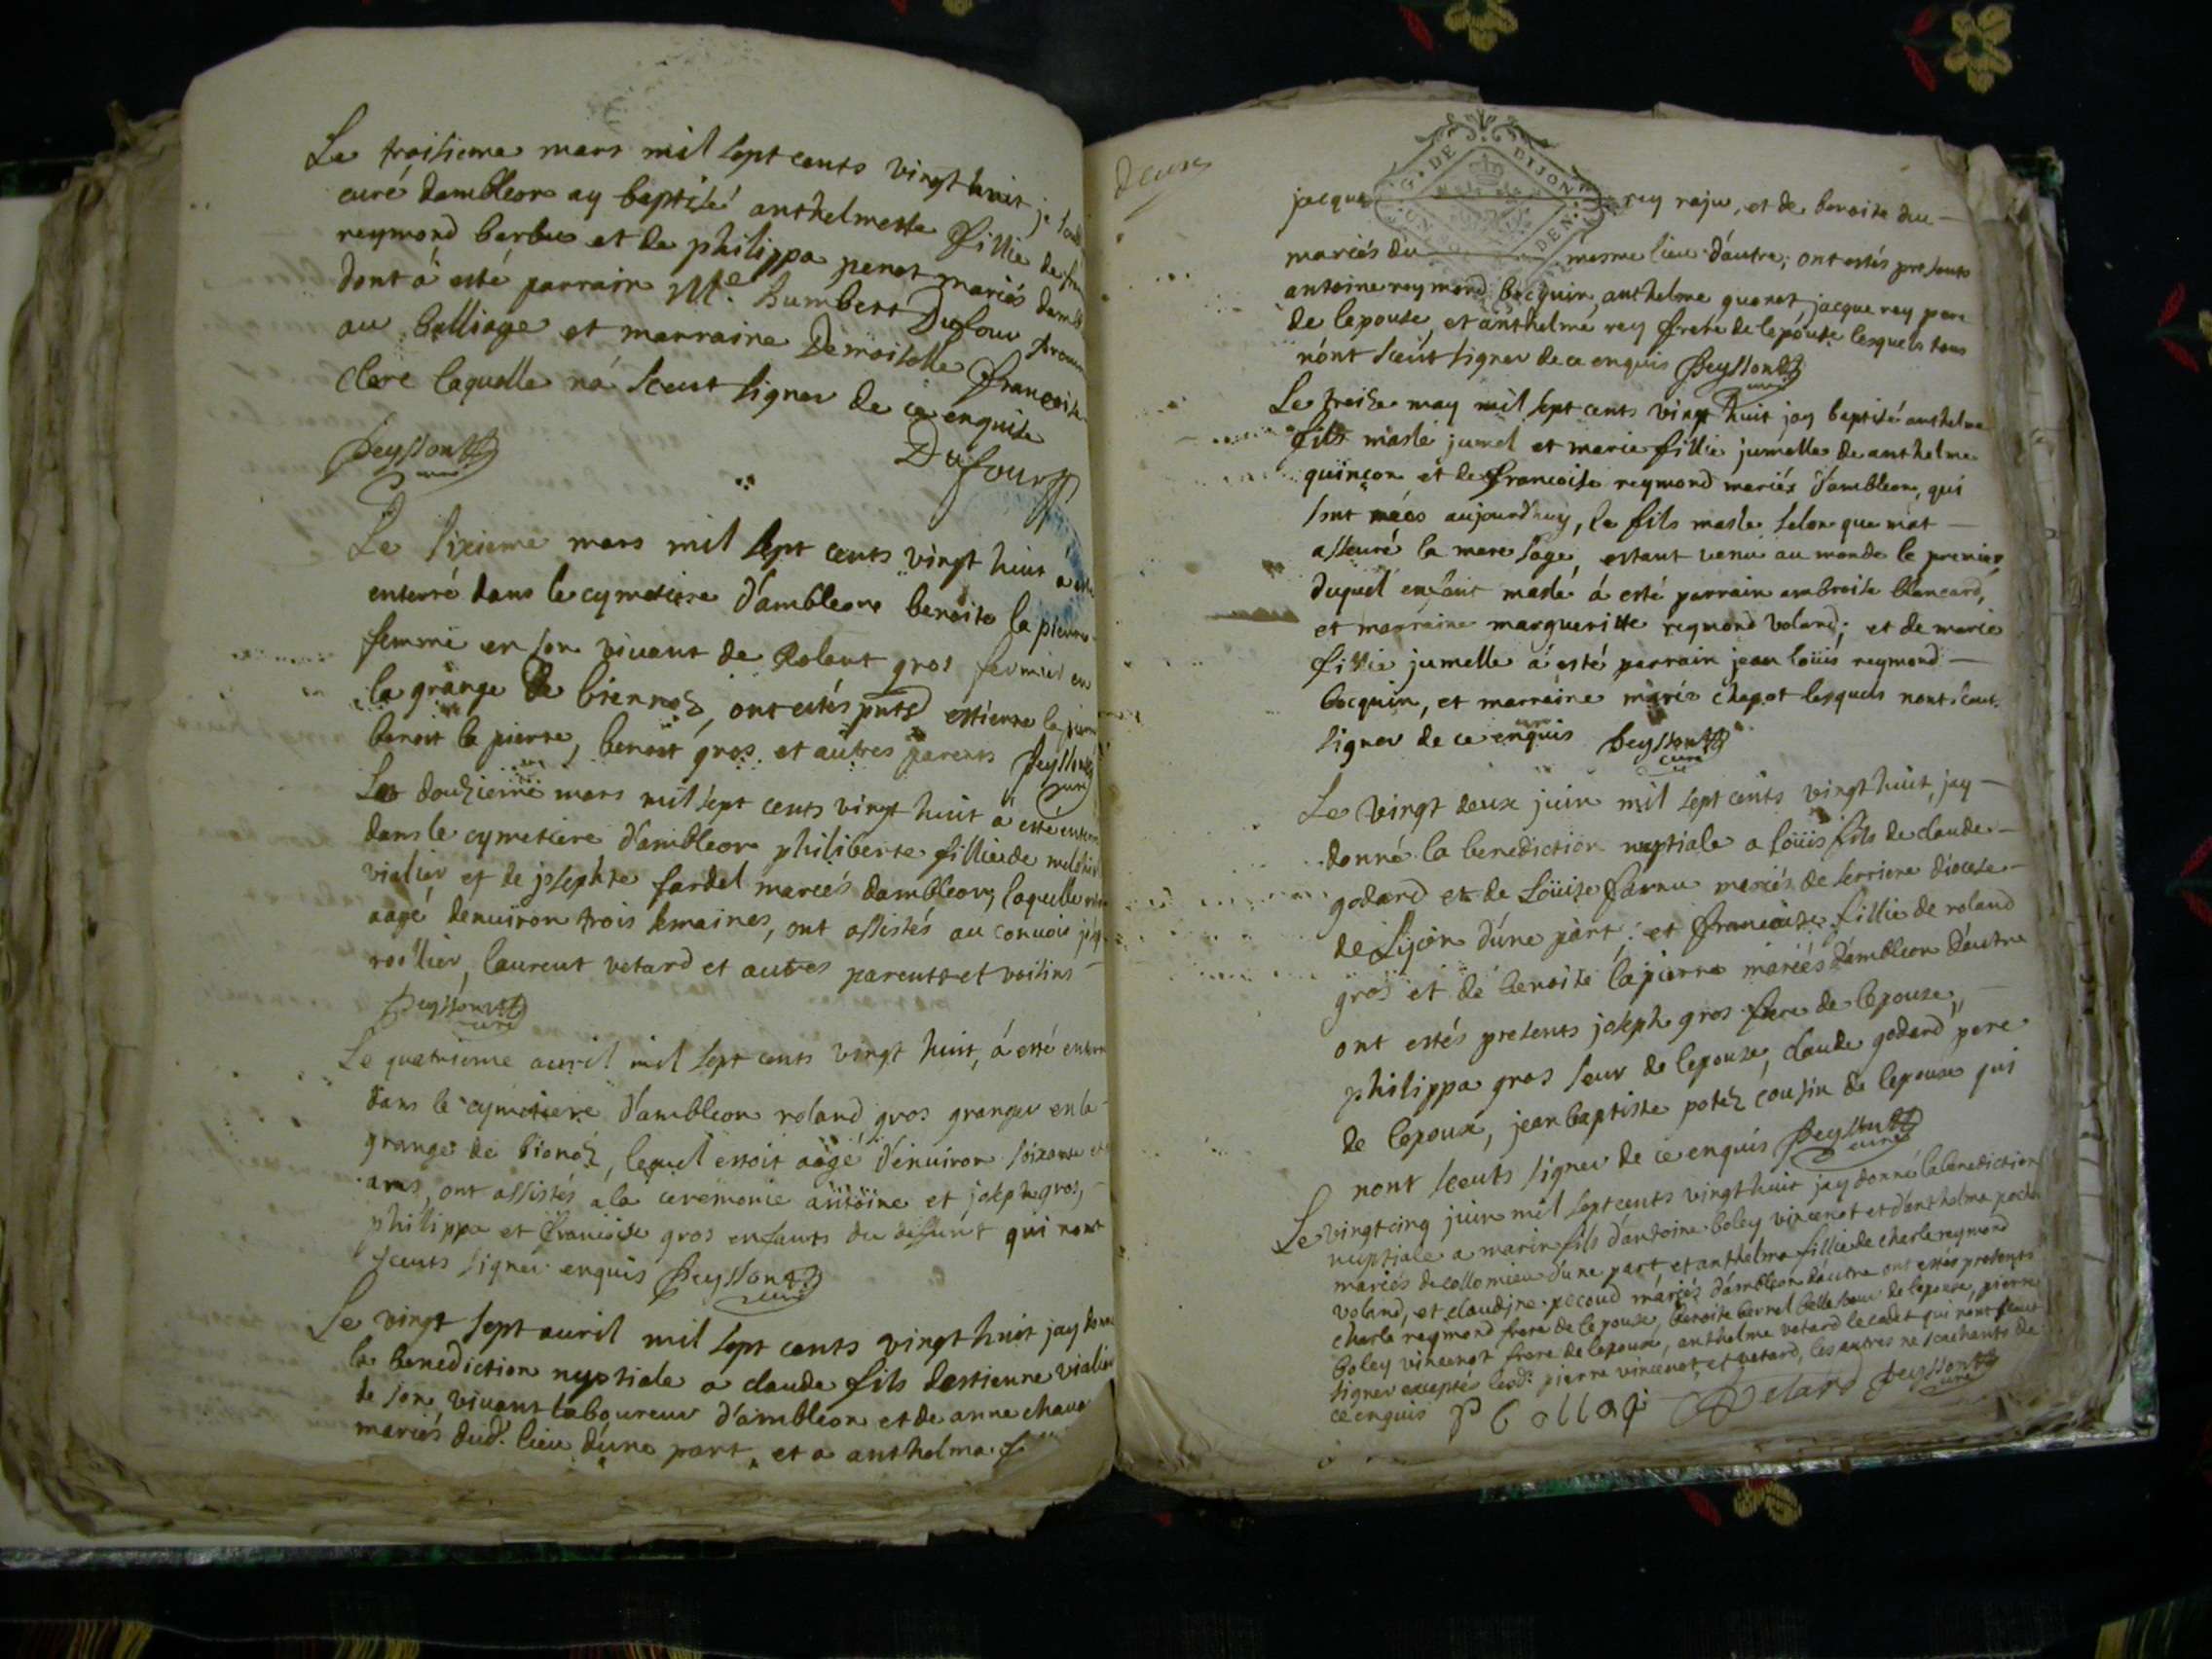 Le troisieme mars mil sept cents vingt huit je
curé dambleon ay baptisé anthelmette fillie de
reymond barbu et de philippa penet mariés
dont á esté parrain Me. humbert Dufour
au balliage et marraine Demoiselle francoise
clerc laquelle ná sceut signer de ce enquise
peysson curé
Dufour
Le sixieme mars mil sept cents vingt huit á
enterré dans le cymetiere d'ambleon benoite la pierre
femme en son vivant de Rolant gros fermier en
la grange de biennoz, ont estés pnts estienne la pierre
benoit la pierre, benoit gros, et autres parents peysson curé
Le douzieme mars mil sept cents vingt huit á esté
dans le cymetiere d'ambleon philiberte fillie de
vialier et de josephte fardel mariés dambleon, laquelle
aagé denuiron trois semaines, ont assistés au conuoir
roillier, laurent vetard et autres parents et voisins
peysson curé
Le quatrieme auril mil sept cents vingt huit, á esté
dans le cymetiere d'ambleon roland gros granger en la
grange de bionoz, lequel estoit aagé d'enuiron soixante
ans, ont assistés a la ceremonie antoine et joseph gros,
philippa et francoise gros enfants du defunt qui nont
sceuts signer enquis peysson curé
Le vingt sept auril mil sept cents vingt huit jay
la benediction nuptiale a claude fils destienne
de son vivant laboureur d'ambleon et de anne
mariés dud. lieu dúne part, et a anthelma
deux
G. DE DIJON
DEN.
jacque rey raju, et de benoite du
mariés du mesme lieu dáutre; ont estés presents
antoine reymond bocquin, anthelme guenet, jacque rey pere
de lepouse, et anthelme rey frere de lepouse lesquels tous
nónt sceut signer de ce enquis peysson curé
Le treize may mil sept cents vingt huit jay baptisé anthelme
fils masle jumel et marie fillie jumelle de anthelme
quinçon et de francoise reymond mariés d'ambleon, qui
sont nées aujourdhuy, le fils masle selon que mát
asseuré la mere sage, estant venu au monde le premier
duquel enfant masle á esté parrain ambroise blancard,
et marraine margueritte reymond voland; et de marie
fillie jumelle á esté parrain jean loüis reymond
bocquin, et marraine marie chapot lesquels nont sceut
signer de ce enquis peysson curé
Le vingt deux juin mil sept cents vingt huit, jay
donné la benediction nuptiale a loüis fils de claude
godard et de Loüise mariés de serriere diocese
de dúne part; et francoise fillie de roland
gros et de benoite lapierre mariés dámbleon dáutre
ont estés presents joseph gros frere de lepouse,
philippa gros seur de lepouse, claude godard pere
de lepoux, jean baptiste potez cousin de lepouse qui
nont sceuts signer de ce enquis peysson curé
Le vingt cinq juin mil sept cents vingt huit jay donné la benediction
nuptiale a marin fils dantoine boley vincenot et danthelma
mariés de collomieu dúne part et anthelma fillie de charle reymond
voland, et claudine pecoud mariés dámbleon dáutre ont estés presents
charle reymond frere de lepouse, benoite berrel belle seur de lepouse, pierre
boley vincenot frere de lepoux, anthelme vetard le cadet qui nont sceut
signer excepté lesd. pierre vincenot, et vetard, les autres ne scachants de
ce enquis P bollaj Vetard peysson curé